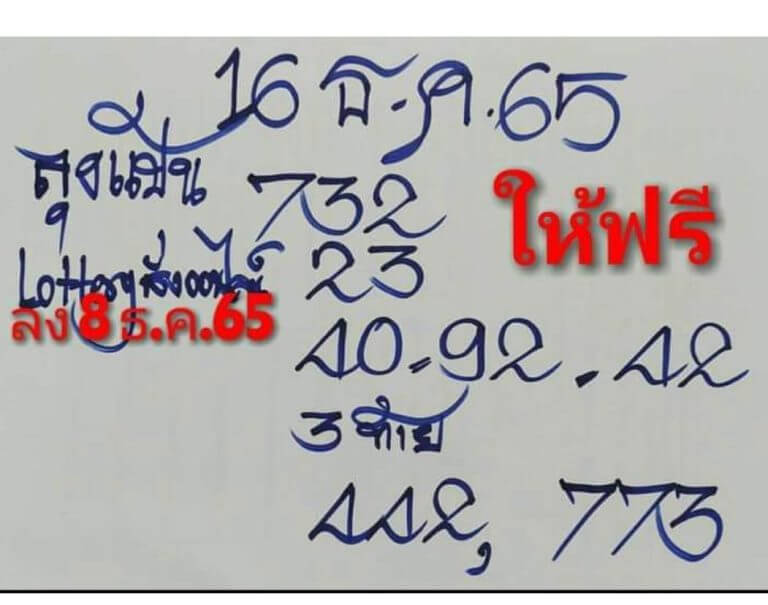 16 ธ.ค.65
ลุงแป้น 732
ให้ฟรี
Lottery สั่งออนไลน์ 23
ลง 8 ธ.ค.65
40-92.42
3 ท้าย
442, 773